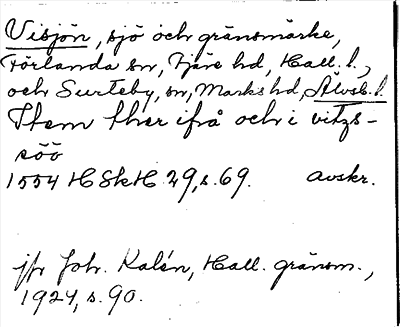 Visjön, sjö och gränsmärke,
Förlanda sn, Fjäre hd, Hall. l.,
och Surteby, sn, Marks hd, Älvsb. l.
Item ther ifrå och i vitzs-
söö
1554 HSkH 29, s. 69. avskr.
jfr Joh. Kalén, Hall. gränsm.,
1924, s. 90.